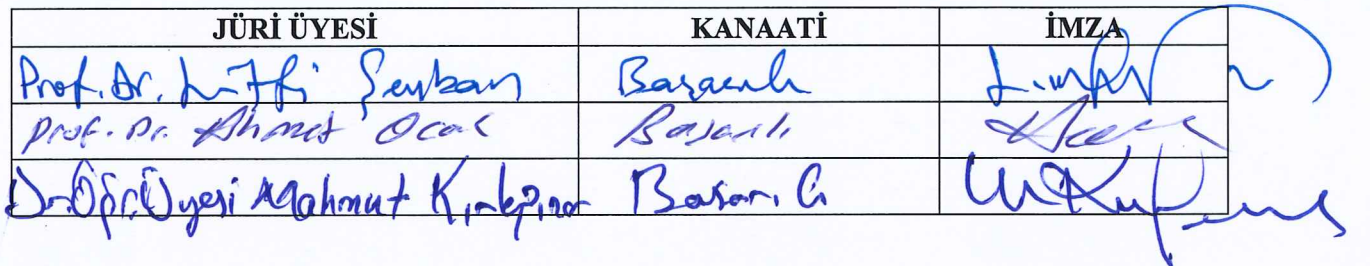 JÜRİ ÜYESİ KANAATİ İMZA
Prof. Dr. Lütfi Şeyban Başarılı
Prof. Dr. Ahmet Ocak Başarılı
Dr. Öğr. Üyesi Mahmut Kırkpınar Başarılı